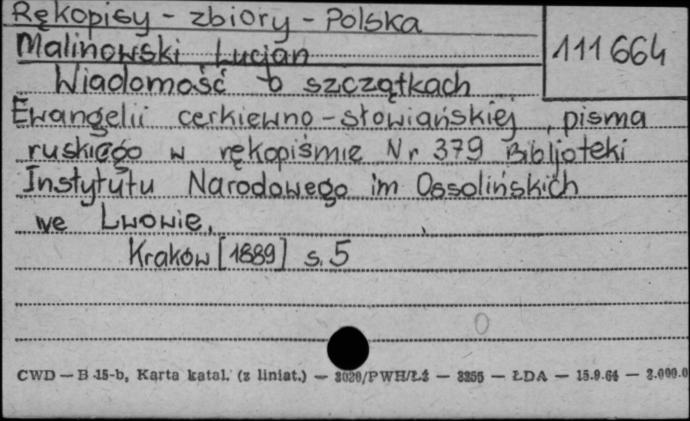 Rękopisy - zbiory - Polska
111664
Malinowski Lucjan
Wiadomość o szczątkach
Ewangelii cerkiewno-słowiańskiej, pisma
ruskiego w rękopiśmie Nr 379 Bibljoteki
Instytutu Narodowego im Ossolińskich
we Lwowie.
Kraków [1889] s. 5
0
CWD — B 15-b, Karta katal. (z liniat.) — 3020/PWH/Ł3 — 3255 — ŁDA — 15.9.64 — 2.000.0